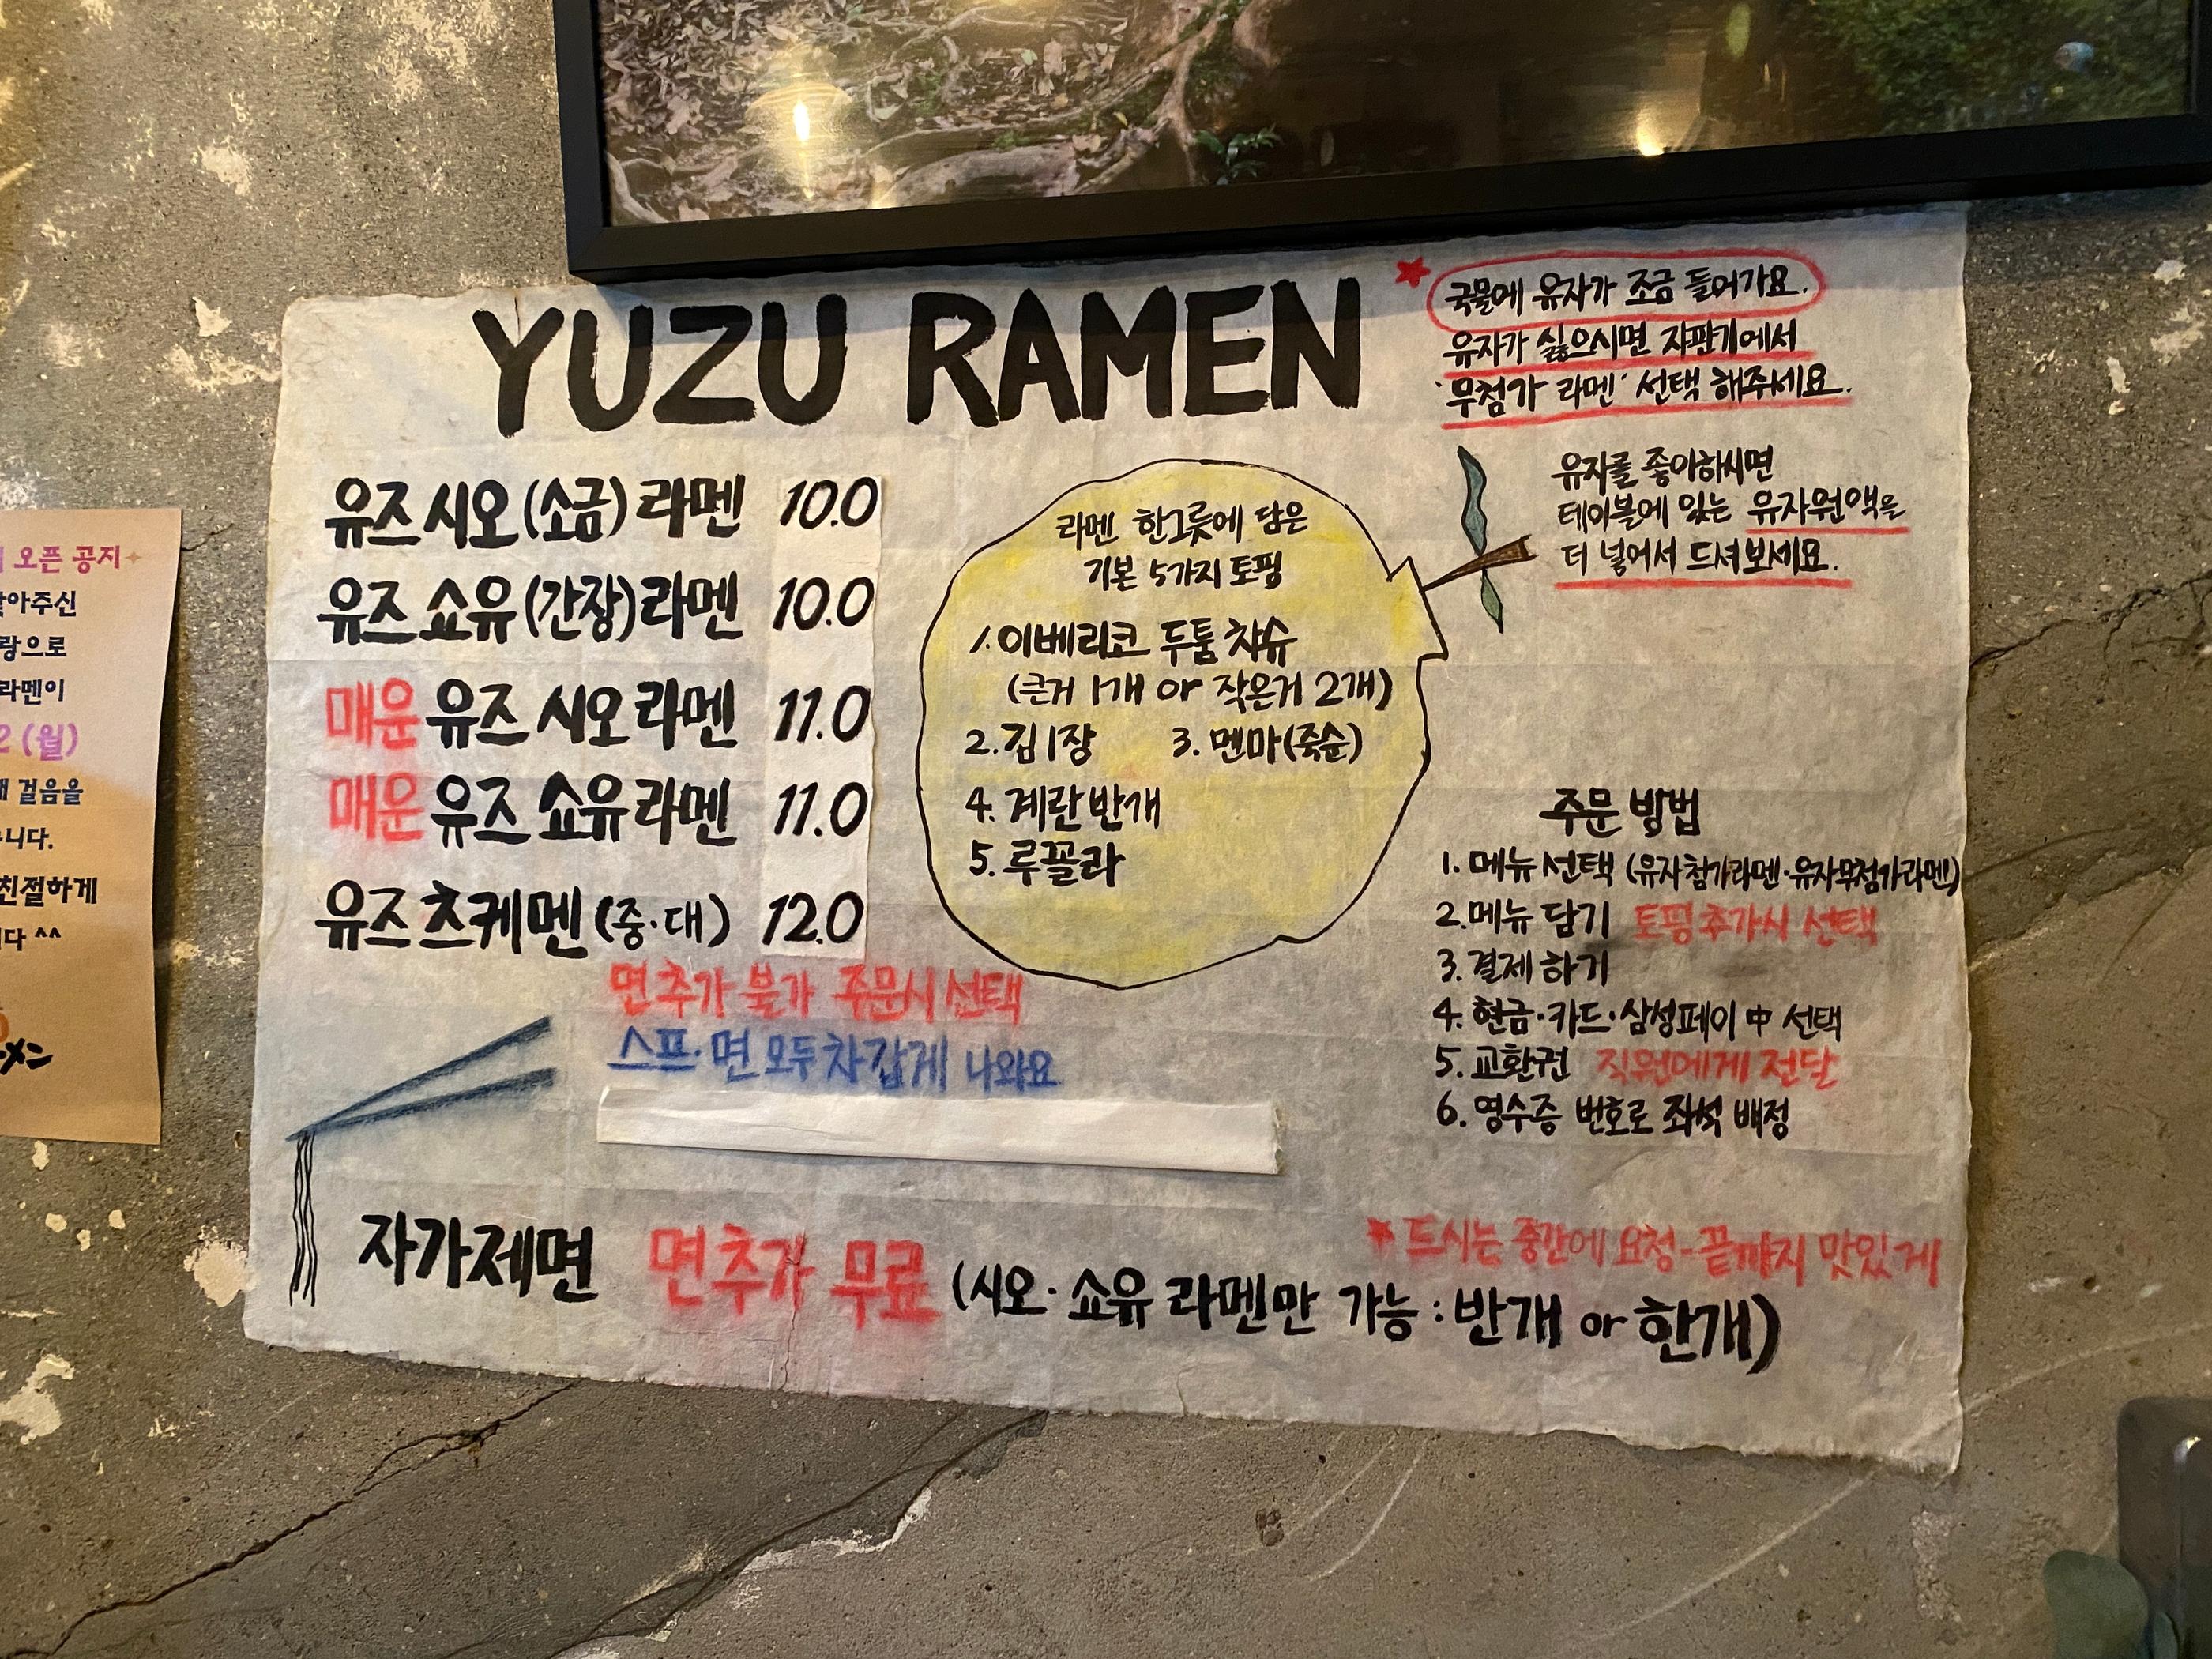 YUZU RAMEN
유즈 시오 (소금) 라멘 10.0
유즈 쇼유 (간장) 라멘 10.0
매운 유즈 시오 라멘 11.0
매운 유즈 쇼유 라멘 11.0
유즈 츠케멘 (중·대) 12.0
면 추가 불가 주문시 선택
스프·면 모두 차갑게 나와요
라멘 한그릇에 담은
기본 5가지 토핑
1. 이베리코 두툼 챠슈
(큰거 1개 or 작은거 2개)
2. 김 1장 3. 멘마(죽순)
4. 계란 반개
5. 루꼴라
★ 국물에 유자가 조금 들어가요.
유자가 싫으시면 자판기에서
'무첨가 라멘' 선택 해주세요.
유자를 좋아하시면
테이블에 있는 유자원액을
더 넣어서 드셔보세요.
주문 방법
1. 메뉴 선택 (유자첨가라멘·유자무첨가라멘)
2. 메뉴 담기 토핑 추가시 선택
3. 결제 하기
4. 현금·카드·삼성페이 中 선택
5. 교환권 직원에게 전달
6. 영수증 번호로 좌석 배정
★ 드시는 중간에 요청 - 끝까지 맛있게
자가제면 면추가 무료 (시오·쇼유 라멘만 가능 : 반개 or 한개)
오픈 공지
아주신
랑으로
라멘이
2 (월)
걸음을
니다.
친절하게
다 ^^
メン